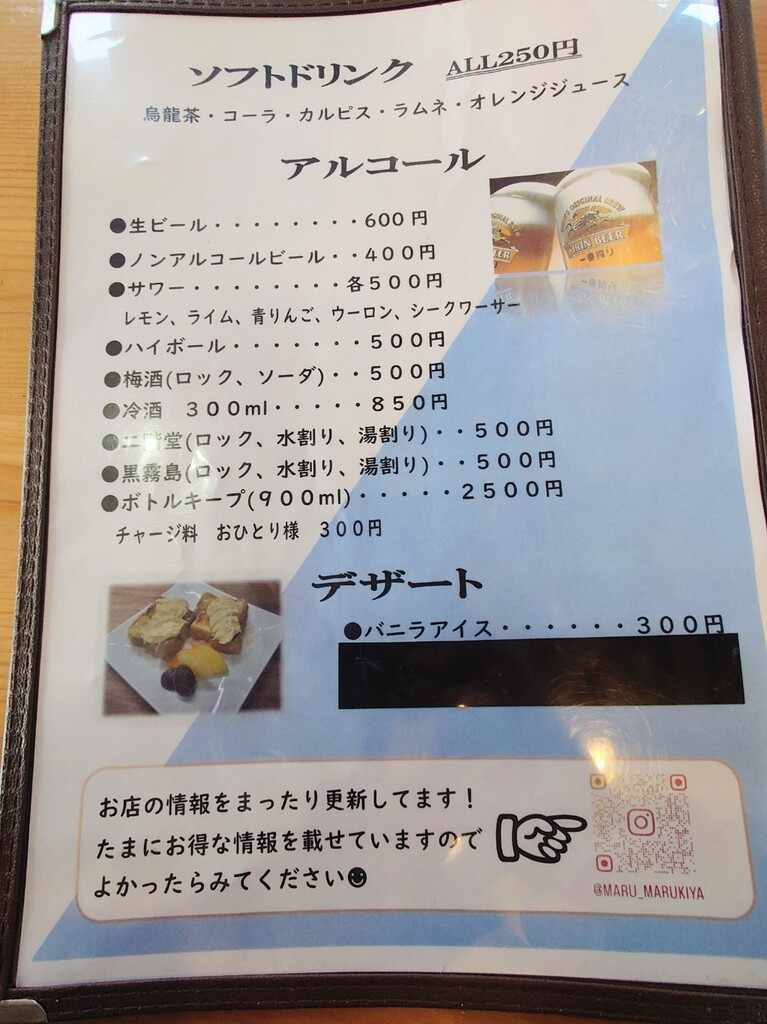 ソフトドリンク ALL250円
烏龍茶・コーラ・カルピス・ラムネ・オレンジジュース
アルコール
●生ビール・・・・・・・・600円
●ノンアルコールビール・・400円
●サワー・・・・・・・・各500円
レモン、ライム、青りんご、ウーロン、シークワーサー
●ハイボール・・・・・・・500円
●梅酒(ロック、ソーダ)・・500円
●冷酒 300ml・・・・・850円
●二階堂(ロック、水割り、湯割り)・・500円
●黒霧島(ロック、水割り、湯割り)・・500円
●ボトルキープ(900ml)・・・・・2500円
チャージ料 おひとり様 300円
ORIGINAL BREW
KIRIN BEER
一番搾り
デザート
●バニラアイス・・・・・・300円
お店の情報をまったり更新してます！
たまにお得な情報を載せていますので
よかったらみてください☻
@MARU_MARUKIYA